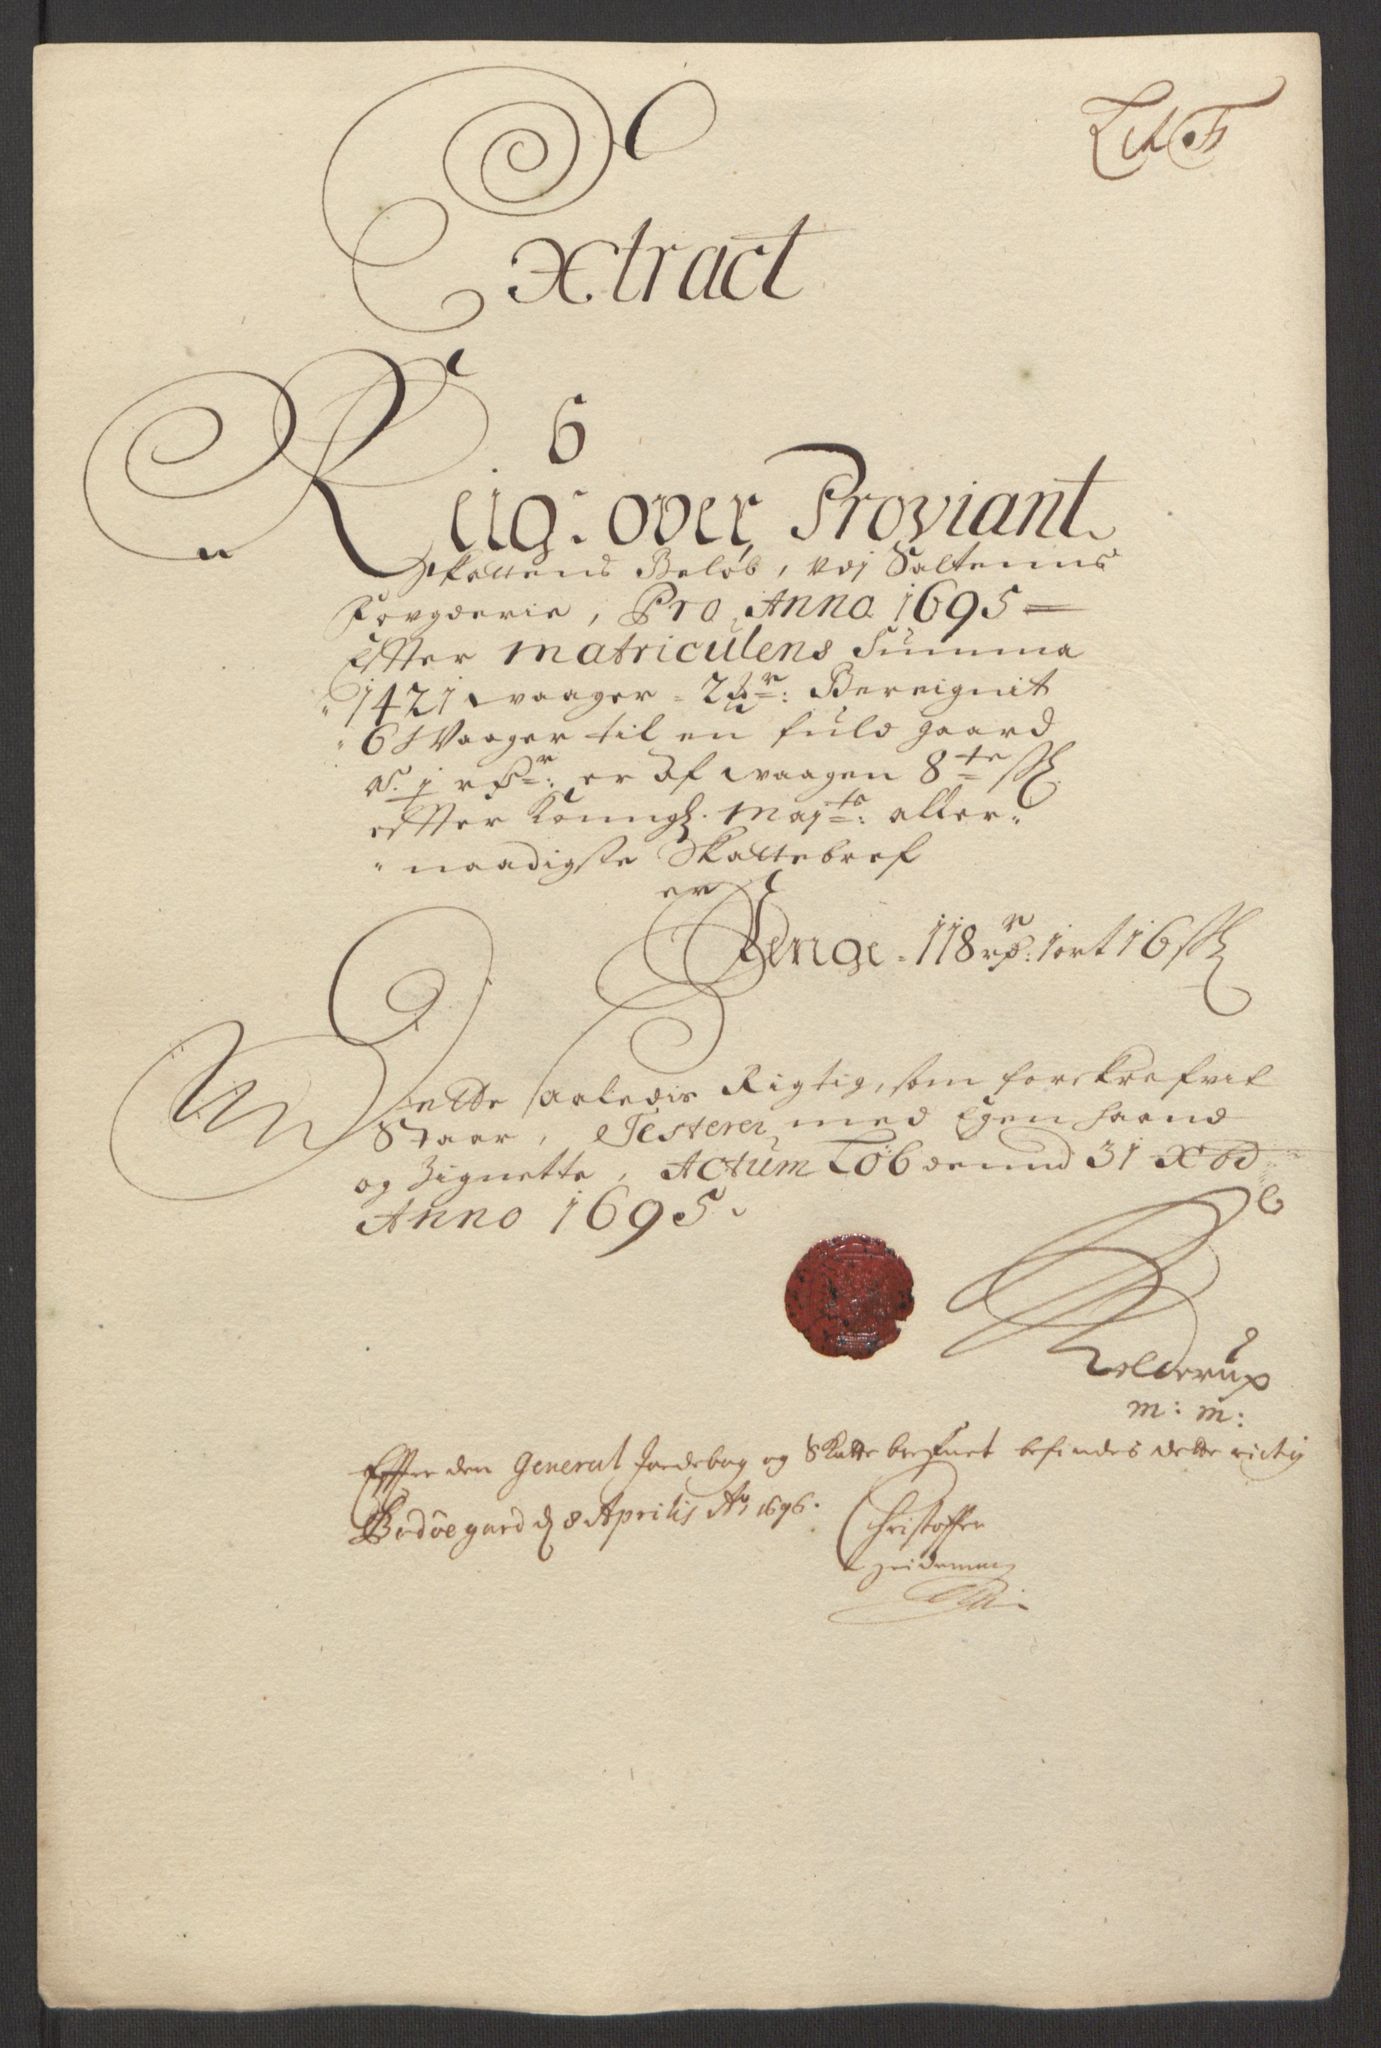 Lit F
Extract
6
Reig: over Proviant
Skattens Beløb, udj Saltenns
Fougderie, Pro Anno 1695
Effter matriculens Summa
1421 waager - 2 Bereignit
6 Waager til en fuld gaard
er af waagen 8te ß
effter Konngl. Mayts: aller-
naadigste Skattebref
er
Penge - 118 rdr: 1 ort 16 ß
Dette saaledis Rigtig, som forskrefvit
Staar, Testerer med Egen haand
og Zignette, Actum Løb dennd 31 Xbr
Anno 1695.
Kelderup
m: m:
Effter den General Jordebog og Skatte brefuet befindes dette rictig
Bodøegaard d 8 Aprilis Ao 1696.
Christoffer
Heideman